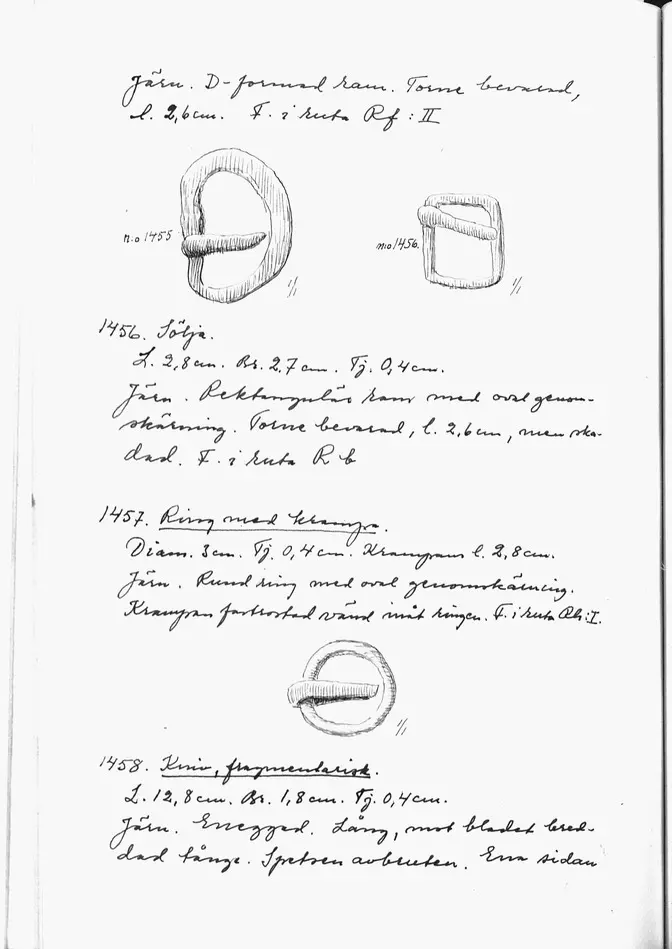 Järn. D-formad ram. Torne bevarad,
l. 2,6 cm. F. i ruta Rf : II
n:o 1455
n:o 1456.
1/1
1/1
1456. Sölja.
L. 2,8 cm. Br. 2,7 cm. Tj. 0,4 cm.
Järn. Rektangulär ram med oval genom-
skärning. Torne bevarad, l. 2,6 cm, men ska-
dad. F. i ruta R b
1457. Ring med krampa.
Diam. 3 cm. Tj. 0,4 cm. Krampans l. 2,8 cm.
Järn. Rund ring med oval genomskärning.
Krampan fastrostad vänd inåt ringen. F. i ruta Rh:I.
1/1
1458. Kniv, fragmentarisk.
L. 12,8 cm. Br. 1,8 cm. Tj. 0,4 cm.
Järn. Eneggad. Lång, mot bladet bred-
dad tånge. Spetsen avbruten. Ena sidan